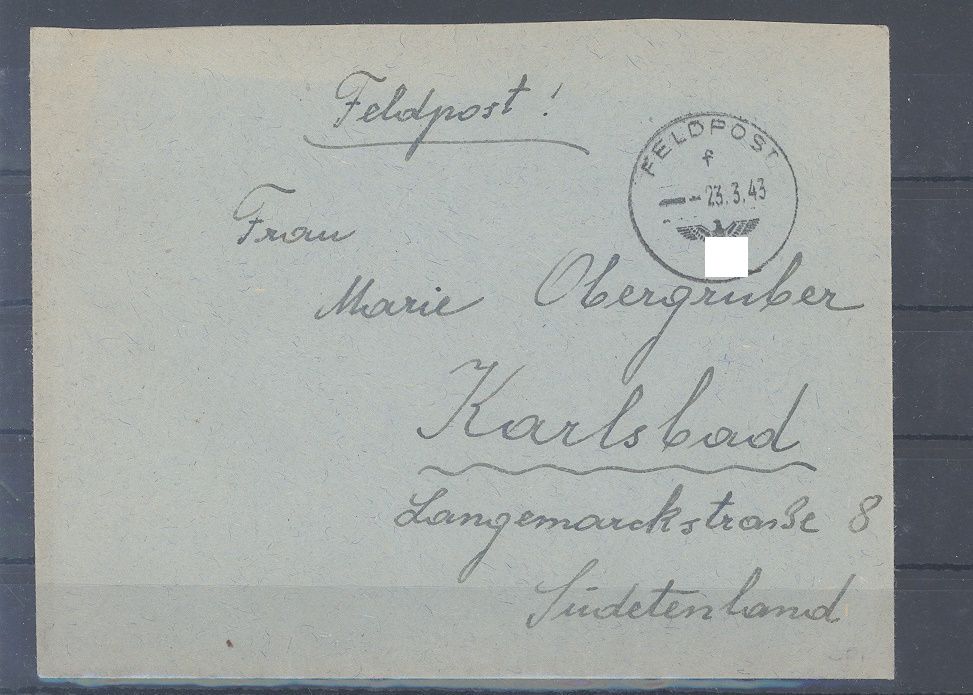 Feldpost!
FELDPOST
f
-- 23.3.43
Frau
Marie Obergruber
Karlsbad
Langemarckstraße 8
Sudetenland